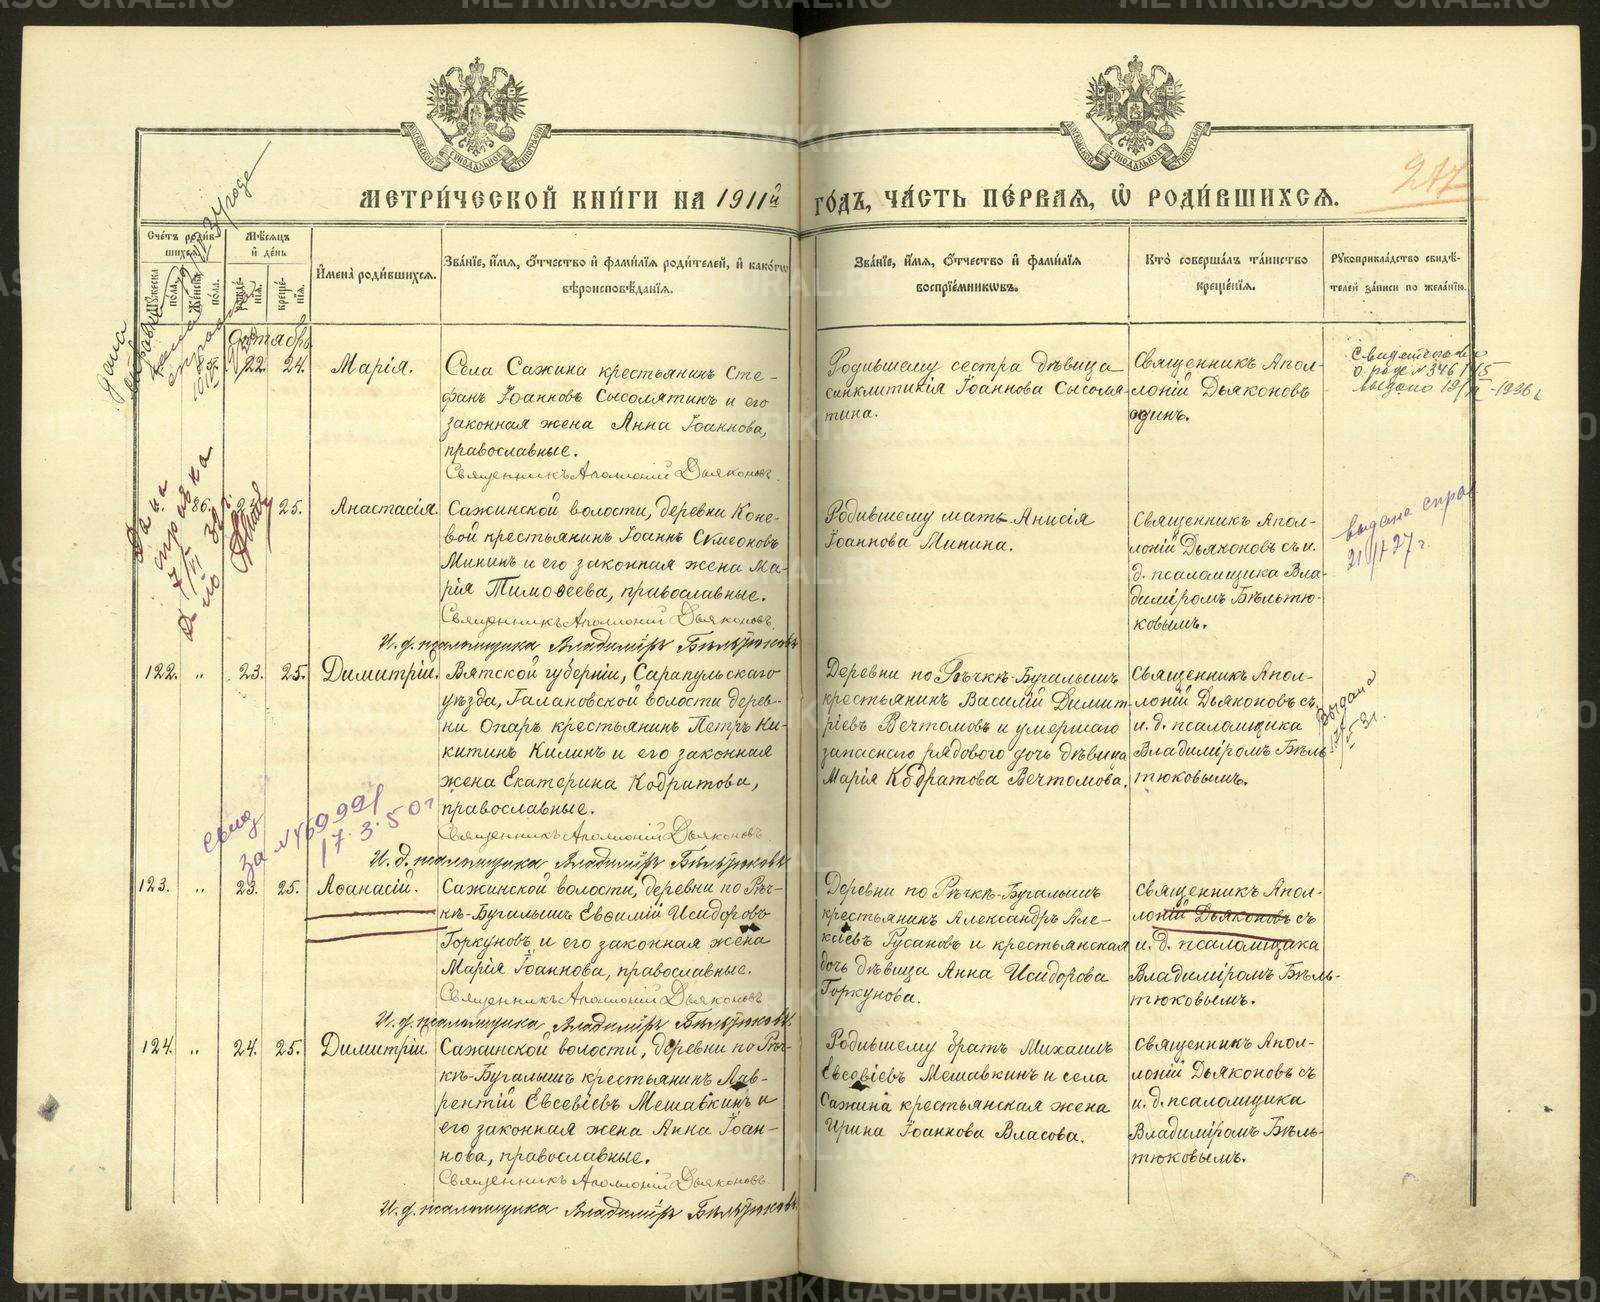 МЕТРИ́ЧЕСКОЙ КНИ́ГИ НА 1911й ГО́ДЪ, ЧА́СТЬ ПЕ́РВАѦ, Ѽ РОДИ́ВШИХСѦ.
217
Сче́тъ роди́в-
шихсѧ.
Мѣ́сѧцъ
и҆ де́нь
И҆мена̀ роди́вшихсѧ.
Зва́нїе, и҆́мѧ, ѻ҆́тчество и҆ фами́лїѧ роди́телей, и҆ како́гѡ
вѣроисповѣ́данїѧ.
Зва́нїе, и҆́мѧ, ѻ҆́тчество и҆ фами́лїѧ
воспрїе́мникѡвъ.
Кто̀ соверша́лъ та́инство
креще́нїѧ.
Рꙋкоприкла́дство свидѣ́-
телей за́писи по жела́нїю.
Мꙋ́жеска
пола.
Же́нска
пола.
рожде́-
нїѧ.
креще́-
нїѧ.
Октябрь
22. 24.
Марія.
Села Сажина крестьянинъ Сте-
фанъ Іоанновъ Сысолятинъ и его
законная жена Анна Іоаннова,
православные.
Священникъ Аполлоній Дьяконовъ.
Родившему сестра дѣвица
синклитикія Іоаннова Сысоля-
тина.
Священникъ Апол-
лоній Дьяконовъ
одинъ.
Свидетельство
о рожд № 346115
выдано 19/II-1936г
86. 25.
Анастасія.
Сажинской волости, деревни Коне-
вой крестьянинъ Іоаннъ Симеоновъ
Мининъ и его законная жена Ма-
рія Тимоѳеева, православные.
Священникъ Аполлоній Дьяконовъ.
И. д. псаломщика Владиміръ Бѣльтюковъ
Родившему мать Анисія
Іоаннова Минина.
Священникъ Апол-
лоній Дьяконовъ съ и.
д. псаломщика Вла-
диміромъ Бѣльтю-
ковымъ.
выдане справ
21/II 27 г.
Дана
справка
7/VI 38г.
122. „ 23. 25.
Димитрій.
Вятской губерніи, Сарапульскаго
уѣзда, Галановской волости дерев-
ни Опаръ крестьянинъ Петръ Ни-
китинъ Килинъ и его законная
жена Екатерина Кодратова,
православные.
Священникъ Аполлоній Дьяконовъ
И. д. псаломщика Владиміръ Бѣльтюковъ
Деревни по Рѣчкѣ-Бугалышъ
крестьянинъ Василій Димит-
ріевъ Вечтомовъ и умершаго
запаснаго рядового дочь дѣвица
Марія Кодратова Вечтомова.
Священникъ Апол-
лоній Дьяконовъ съ
и. д. псаломщика
Владиміромъ Бѣль-
тюковымъ.
Выдана
свид
за № 469991
17.3.50г
123. „ 23. 25.
Аѳанасій.
Сажинской волости, деревни по Рѣч-
кѣ-Бугалышъ Евѳимій Исидоровъ
Горкуновъ и его законная жена
Марія Іоаннова, православные.
Священникъ Аполлоній Дьяконовъ
И. д. псаломщика Владиміръ Бѣльтюковъ.
Деревни по Рѣчкѣ-Бугалышъ
крестьянинъ Александръ Але-
ксіевъ Русановъ и крестьянская
дочь дѣвица Анна Исидорова
Горкунова.
Священникъ Апол-
лоній Дьяконовъ съ
и. д. псаломщика
Владиміромъ Бѣль-
тюковымъ.
124. „ 24. 25.
Димитрій.
Сажинской волости, деревни по Рѣч-
кѣ-Бугалышъ крестьянинъ Лав-
рентій Евсевіевъ Мешавкинъ и
его законная жена Анна Іоан-
нова, православные.
Священникъ Аполлоній Дьяконовъ
И. д. псаломщика Владиміръ Бѣльтюковъ
Родившему братъ Михаилъ
Евсевіевъ Мешавкинъ и села
Сажина крестьянская жена
Ирина Іоаннова Власова.
Священникъ Апол-
лоній Дьяконовъ съ
и. д. псаломщика
Владиміромъ Бѣль-
тюковымъ.
METRIKI.GASO-URAL.RU